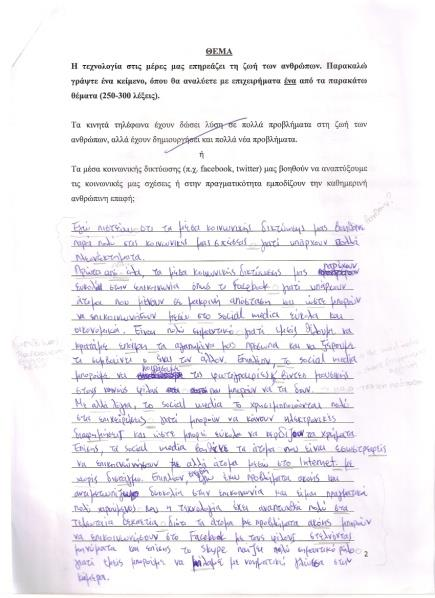 ΘΕΜΑ
Η τεχνολογία στις μέρες μας επηρεάζει τη ζωή των ανθρώπων. Παρακαλώ
γράψτε ένα κείμενο, όπου θα αναλύετε με επιχειρήματα ένα από τα παρακάτω
θέματα (250-300 λέξεις).
Τα κινητά τηλέφωνα έχουν δώσει λύση σε πολλά προβλήματα στη ζωή των
ανθρώπων, αλλά έχουν δημιουργήσει και πολλά νέα προβλήματα.
ή
Τα μέσα κοινωνικής δικτύωσης (π.χ. facebook, twitter) μας βοηθούν να αναπτύξουμε
τις κοινωνικές μας σχέσεις ή στην πραγματικότητα εμποδίζουν την καθημερινή
ανθρώπινη επαφή;
Εγώ πιστεύω ότι τα μέσα κοινωνικής δικτύωσης μας
παρά πολύ μας γιατί υπάρχουν πολλά
πλεονεκτήματα.
Πρώτα από όλα, τα μέσα κοινωνικής δικτύωσης μας παρέχουν
στην επικοινωνία όπως το Facebook γιατί υπάρχουν
άτομα που μένουν σε μακρινή απόσταση και μπορούν
να επικοινωνήσουν μέσω στο social media εύκολα και
οικονομικά. Είναι πολύ σημαντικό γιατί εμείς θέλουμε να
κρατάμε τα αγαπημένα μας πρόσωπα και να ξέρουμε
τι συμβαίνει ο ένας τον άλλον. Επιπλέον, το social media
μπορούμε να τις φωτογραφίες
στους φίλους που μπορούν να τα δουν.
Με άλλα λόγια, το social media το χρησιμοποιούνται πολύ
στις επιχειρήσεις γιατί μπορούν να κάνουν ηλεκτρονικές
διαφημίσεις και εύκολα να τα χρήματα.
Επίσης, τα social media τα άτομα που είναι εσωστρεφείς
να επικοινωνήσουν με άλλα άτομα μέσω στο Internet με
χωρίς δισταγμό. Επιπλέον, έχω προβλήματα ακοής και
δυσκολία στην επικοινωνία και είμαι πραγματικά
πολύ η τεχνολογία έχει αναπτυχθεί πολύ στα
τελευταία δεκαετία, διότι τα άτομα με προβλήματα ακοής μπορούν
να επικοινωνήσουν στο Facebook με τους φίλους στέλνοντας
μηνύματα και επίσης το Skype παίζει πολύ σημαντικό ρόλο
γιατί εμείς μπορούμε να μιλάμε με νοηματική γλώσσα στην
κάμερα.
2